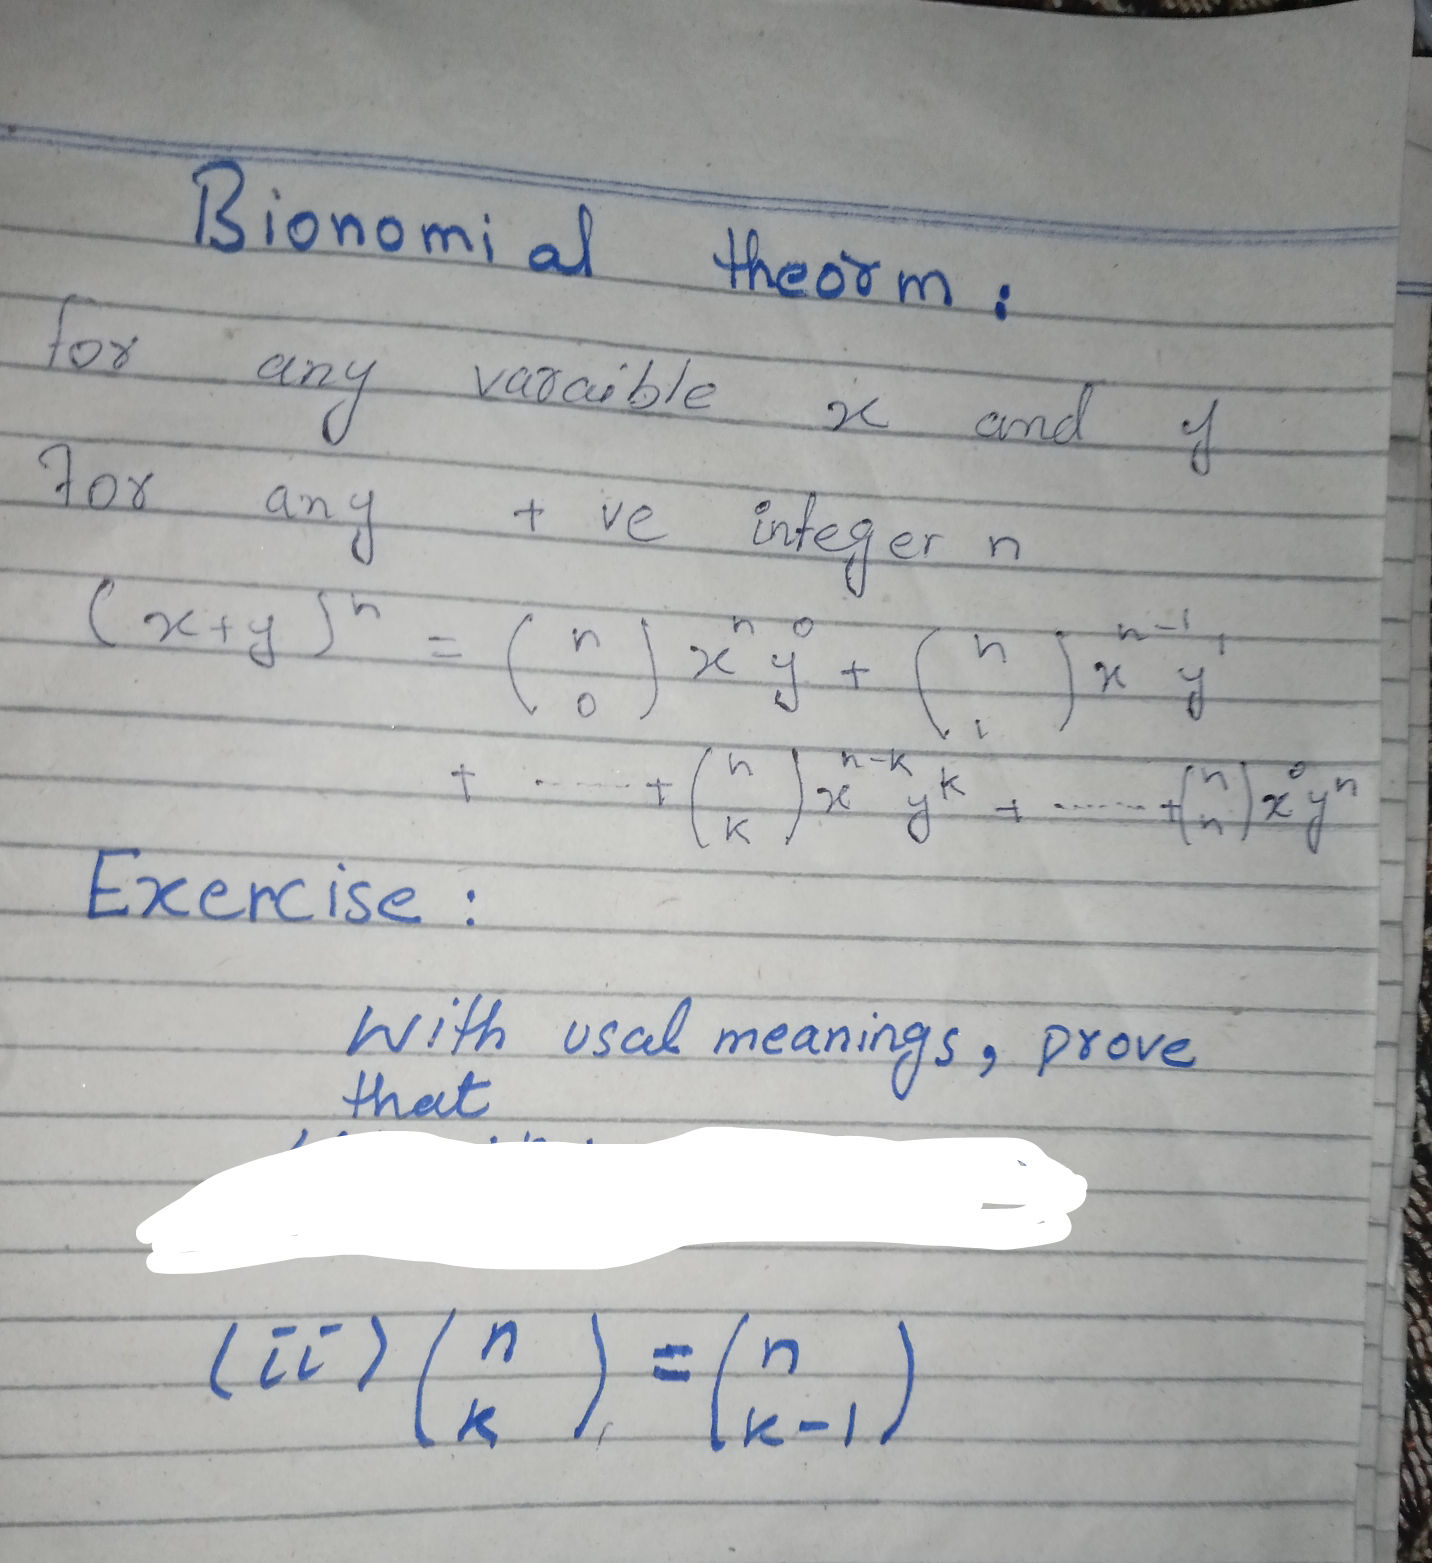 Bionomial theorm:
for any varaible x and y
For any +ve integer n
(x+y)^n = (n 0) x^n y^0 + (n 1) x^{n-1} y^1
+ ...... + (n k) x^{n-k} y^k + ...... + (n n) x^0 y^n
Exercise:
with usal meanings, prove
that
(ii) (n k) = (n k-1)